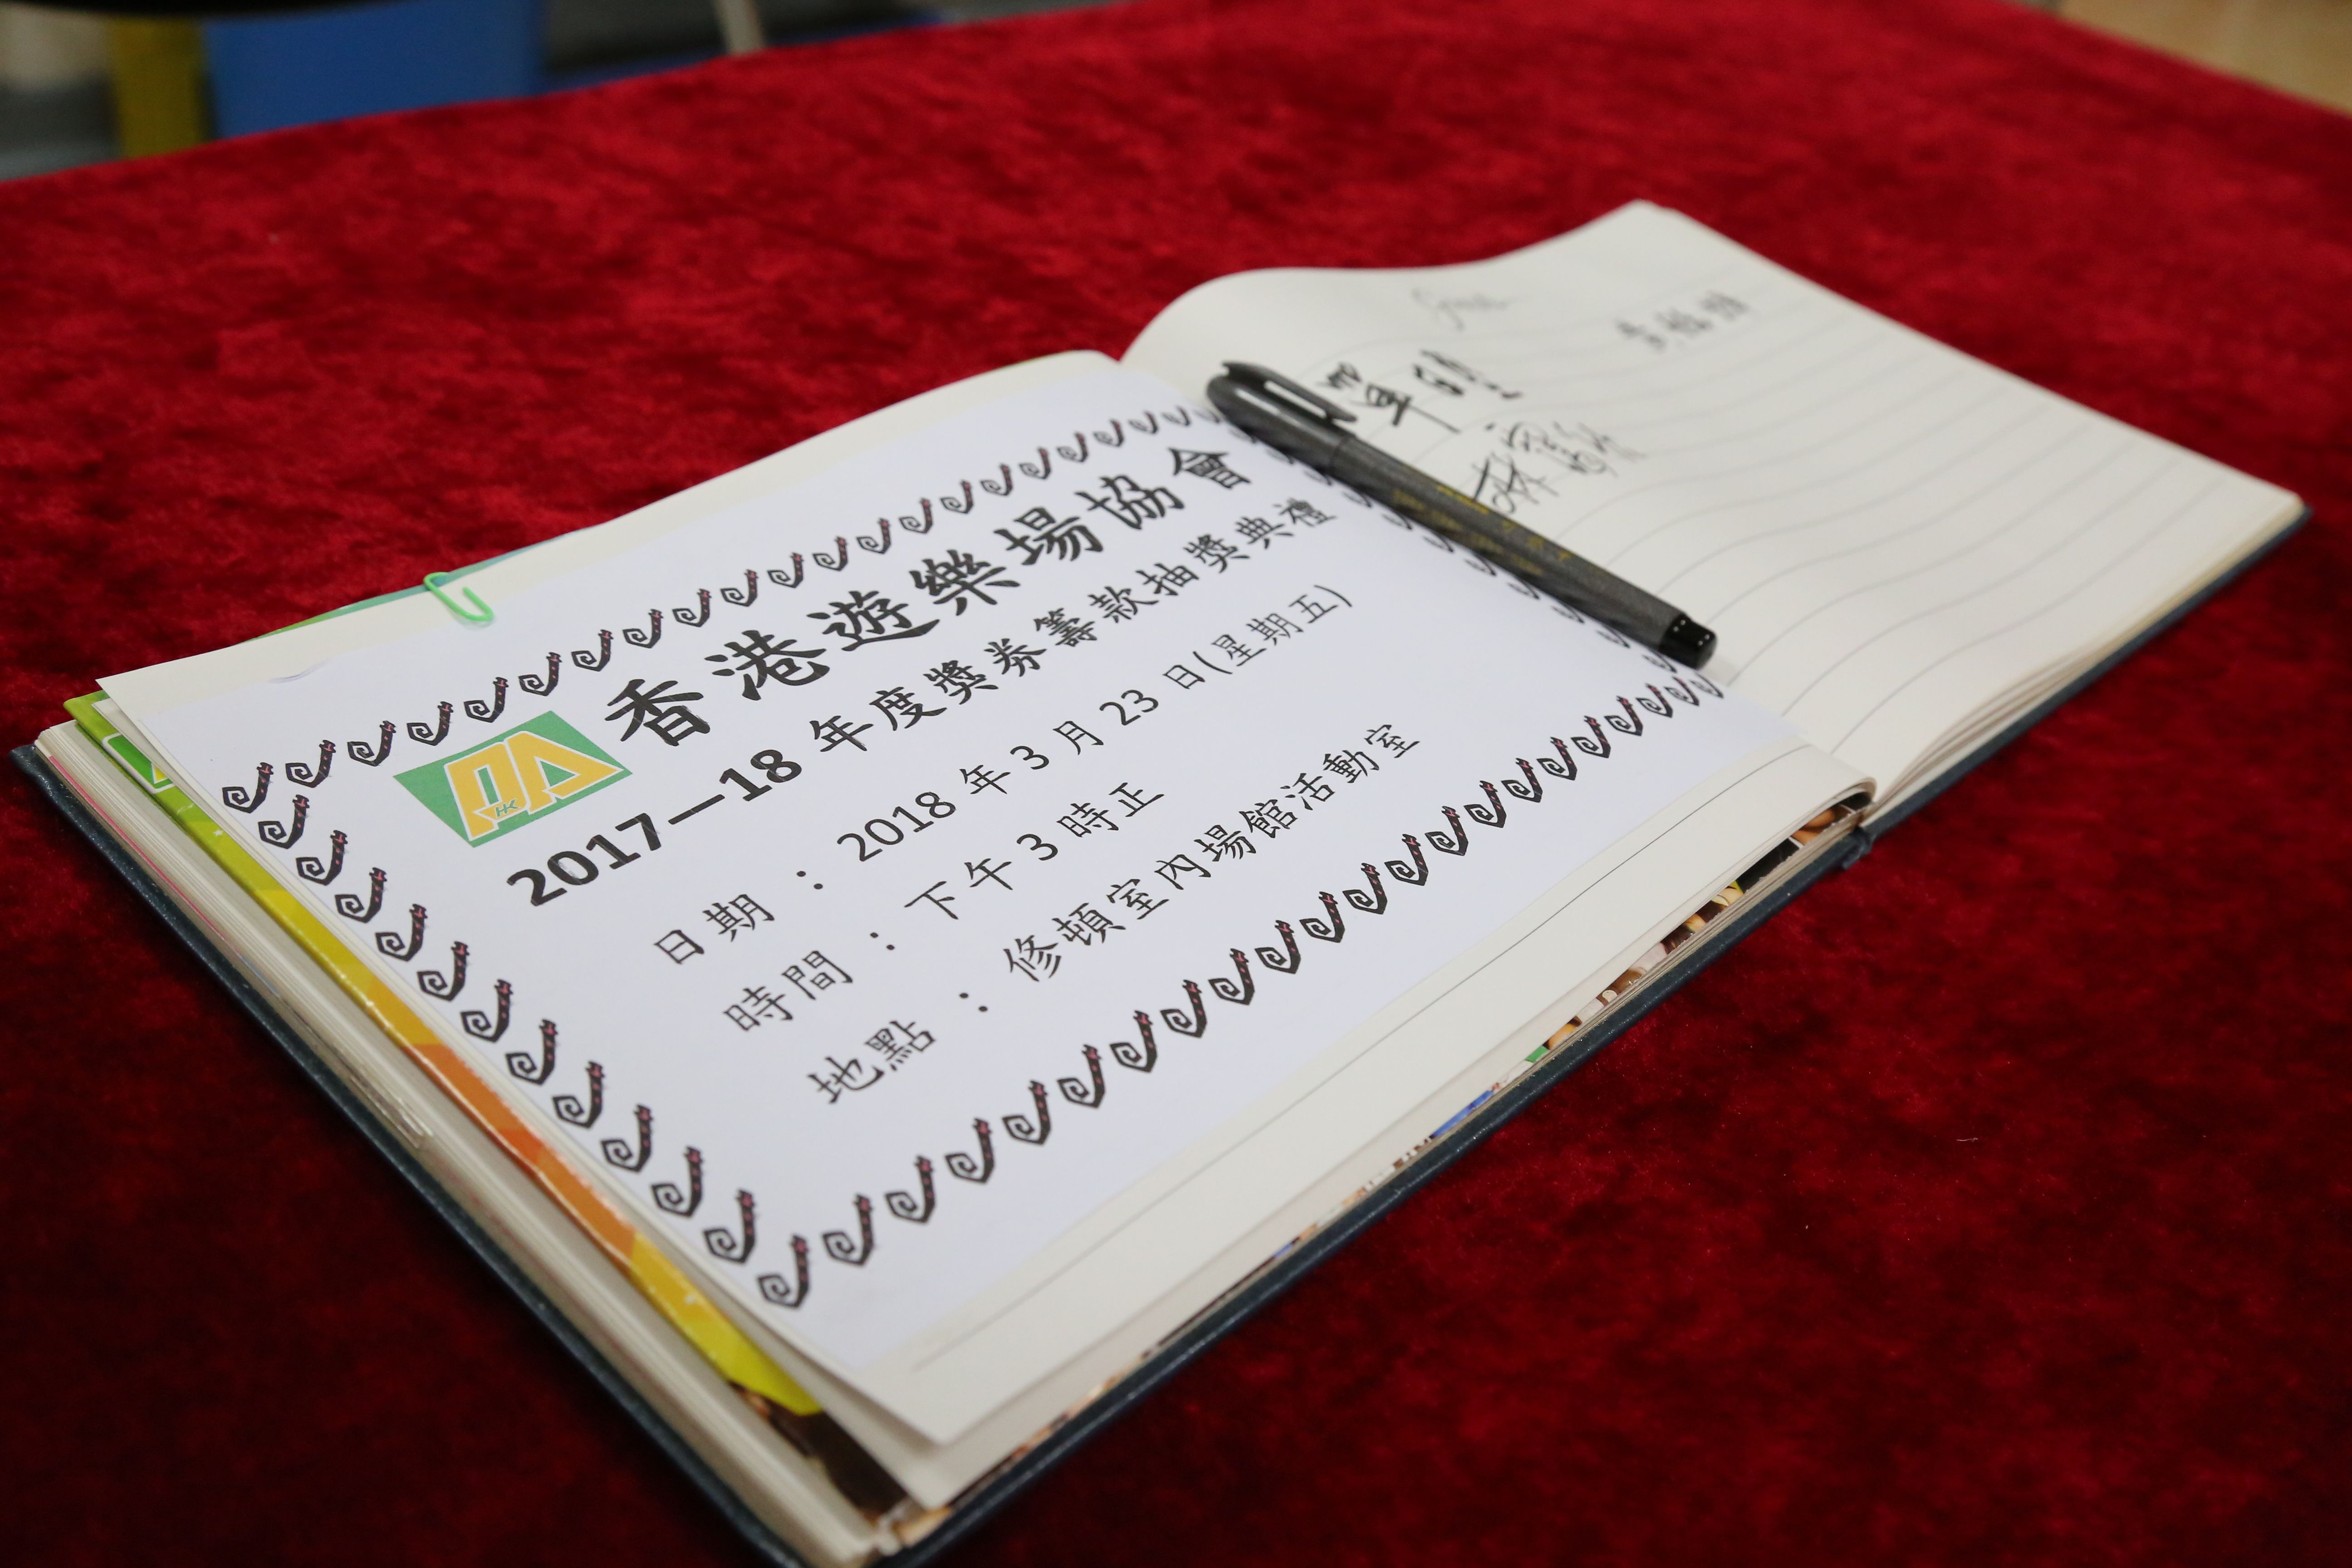 香港遊樂場協會
2017—18 年度獎券籌款抽獎典禮
日期 : 2018 年 3 月 23 日(星期五)
時間 : 下午 3 時正
地點 : 修頓室內場館活動室